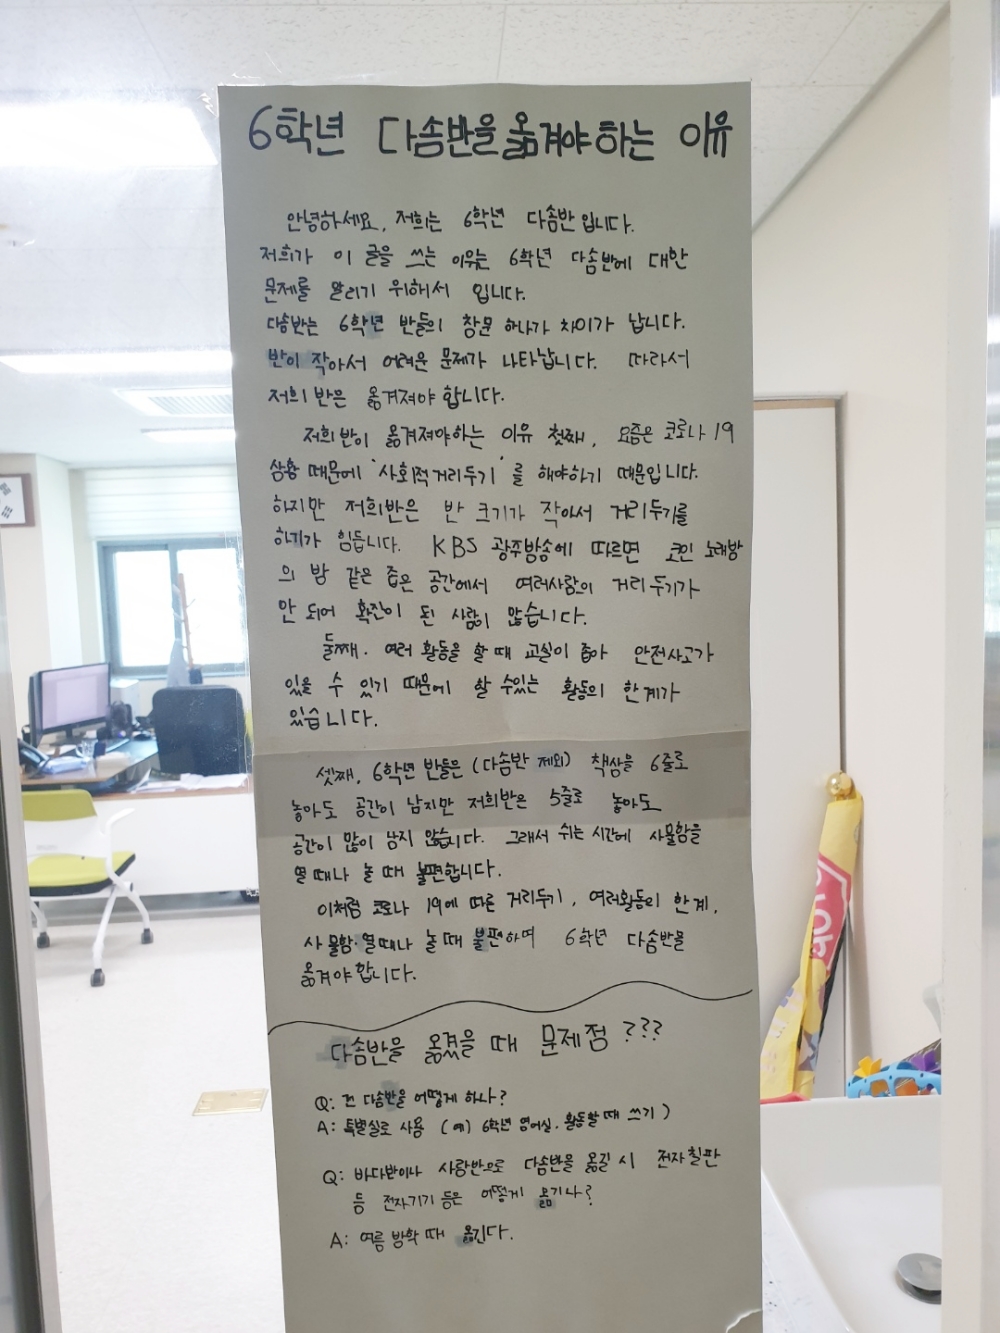 6학년 다솜반을 옮겨야 하는 이유
안녕하세요, 저희는 6학년 다솜반입니다.
저희가 이 글을 쓰는 이유는 6학년 다솜반에 대한
문제를 알리기 위해서 입니다.
다솜반는 6학년 반들의 창문 하나가 차이가 납니다.
반이 작아서 어려운 문제가 나타납니다. 따라서
저희 반은 옮겨져야 합니다.
저희반이 옮겨져야하는 이유 첫째, 요즘은 코로나 19
상황 때문에 '사회적거리두기'를 해야하기 때문입니다.
하지만 저희반은 반 크기가 작아서 거리두기를
하기가 힘듭니다. KBS 광주방송에 따르면 코인 노래방
의 방 같은 좁은 공간에서 여러사람의 거리두기가
안 되어 확진이 된 사람이 많습니다.
둘째. 여러 활동을 할 때 교실이 좁아 안전사고가
있을 수 있기 때문에 할 수있는 활동의 한계가
있습니다.
셋째, 6학년 반들은 (다솜반 제외) 책상을 6줄로
놓아도 공간이 남지만 저희반은 5줄로 놓아도
공간이 많이 남지 않습니다. 그래서 쉬는 시간에 사물함을
열 때나 놀 때 불편합니다.
이처럼 코로나 19에 따른 거리두기, 여러활동의 한계,
사물함·열때나 놀 때 불편하며 6학년 다솜반을
옮겨야 합니다.
다솜반을 옮겼을 때 문제점???
Q: 전 다솜반을 어떻게 하나?
A: 특별실로 사용 (예) 6학년 영어실, 활동할 때 쓰기)
Q: 바다반이나 사랑반으로 다솜반을 옮길 시 전자칠판
등 전자기기 등은 어떻게 옮기나?
A: 여름 방학 때 옮긴다.